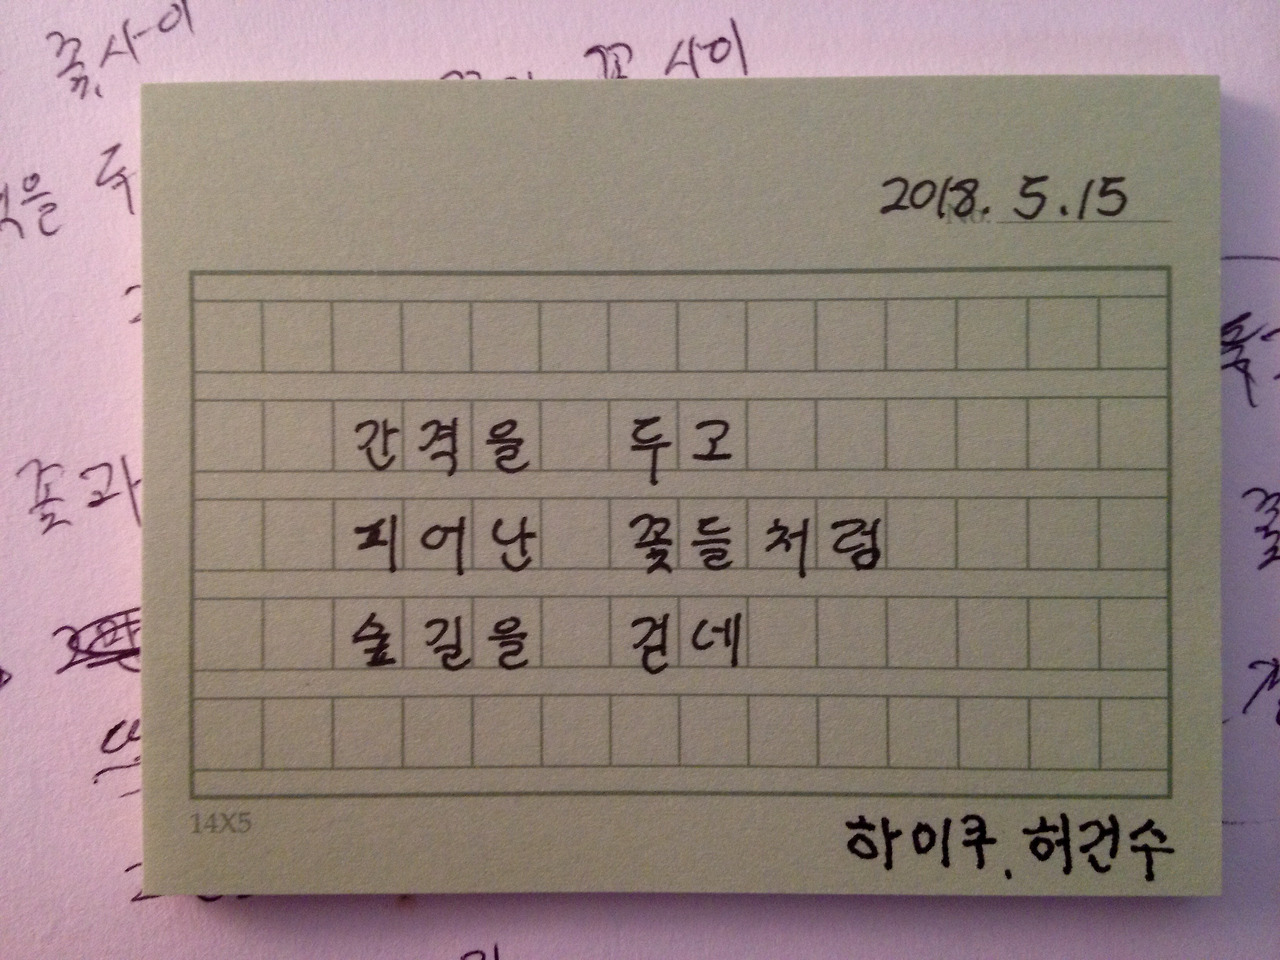 꽃, 사이
꽃 사이
2018. 5. 15
No.
간격을 두고
피어난 꽃들처럼
숲길을 걷네
14X5
하이쿠. 허건수
꽃과